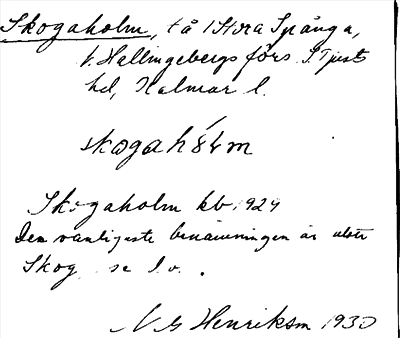 Skogaholm, t å 1 Stora Spånga,
V. Hallingebergs förs. S. Tjusts
hd, Kalmar l.
skogah
Skogaholm kb 1929
Den vanligaste benämningen är
Skog se d. o.
N G Henrikson 1930